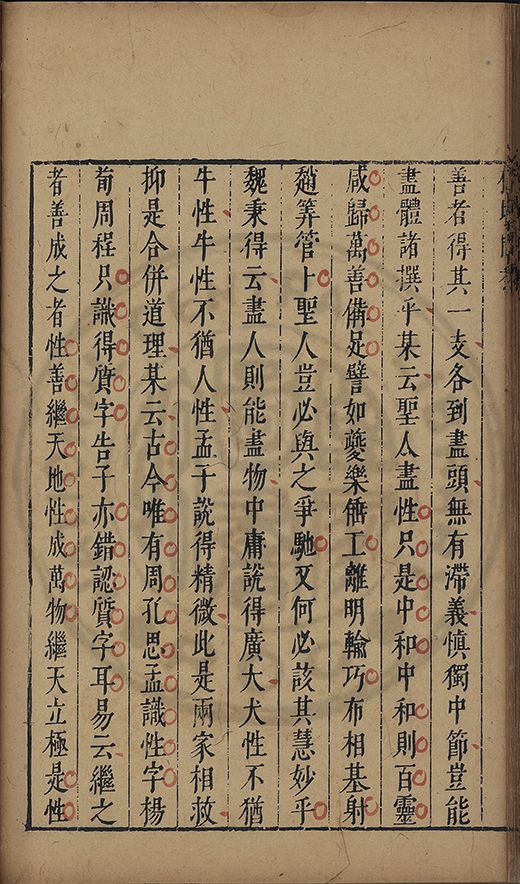 善者得其一支各到盡頭無有滯義慎獨中節豈能
盡體諸撰乎某云聖人盡性只是中和中和則百靈
咸歸萬善備足譬如夔樂倕工離明輸巧布相基射
趙筭管卜聖人豈必與之爭馳又何必該其慧妙乎
魏秉得云盡人則能盡物中庸說得廣大犬性不猶
牛性牛性不猶人性孟子說得精微此是兩家相救
抑是合併道理某云古今唯有周孔思孟識性字楊
荀周程只識得質字告子亦錯認質字耳易云繼之
者善成之者性善繼天地性成萬物繼天立極是性